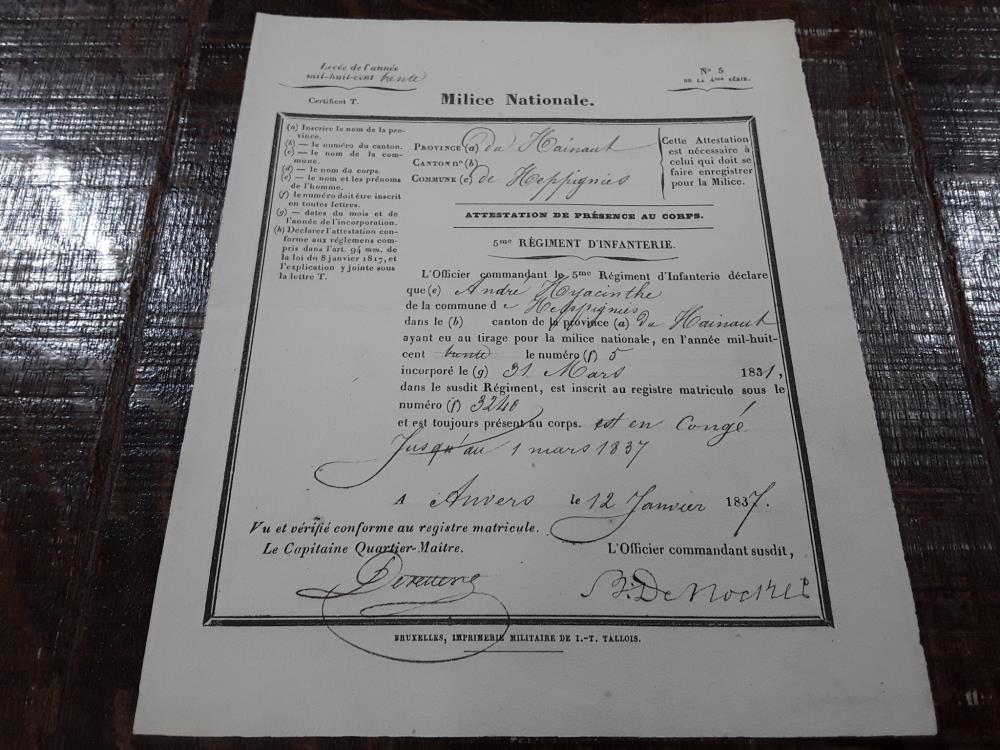 Levée de l'année
mil-huit-cent trente
Certificat T.
N° 5
DE LA 4me SÉRIE.
Milice Nationale.
(a) Inscrire le nom de la pro-
vince.
(b) — le numéro du canton.
(c) — le nom de la com-
mune.
(d) — le nom du corps.
(e) — le nom et les prénoms
de l'homme.
(f) le numéro doit être inscrit
en toutes lettres.
(g) — dates du mois et de
l'année de l'incorporation.
(h) Déclarer l'attestation con-
forme aux réglemens com-
pris dans l'art. 94 mm. de
la loi du 8 janvier 1817, et
l'explication y jointe sous
la lettre T.
PROVINCE (a) du Hainaut
CANTON n° (b)
COMMUNE (c) de Heppignies
Cette Attestation
est nécessaire à
celui qui doit se
faire enregistrer
pour la Milice.
ATTESTATION DE PRÉSENCE AU CORPS.
5me RÉGIMENT D'INFANTERIE.
L'Officier commandant le 5me Régiment d'Infanterie déclare
que (e) André Hyacinthe
de la commune d e Heppignies
dans le (b) canton de la province (a) du Hainaut
ayant eu au tirage pour la milice nationale, en l'année mil-huit-
cent trente le numéro (f) 5
incorporé le (g) 31 Mars 1831,
dans le susdit Régiment, est inscrit au registre matricule sous le
numéro (f) 3240
et est toujours présent au corps. est en Congé
Jusqu'au 1 mars 1837
A Anvers le 12 Janvier 1837.
Vu et vérifié conforme au registre matricule.
Le Capitaine Quartier-Maitre.
L'Officier commandant susdit,
BRUXELLES, IMPRIMERIE MILITAIRE DE I.-T. TALLOIS.